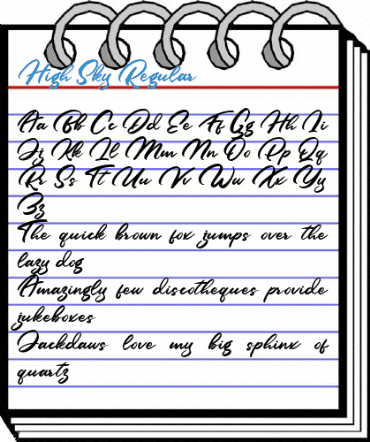 High Sky Regular
Aa Bb Cc Dd Ee Ff Gg Hh Ii
Jj Kk Ll Mm Nn Oo Pp Qq
Rr Ss Tt Uu Vv Ww Xx Yy
Zz
The quick brown fox jumps over the
lazy dog
Amazingly few discotheques provide
jukeboxes
Jackdaws love my big sphinx of
quartz